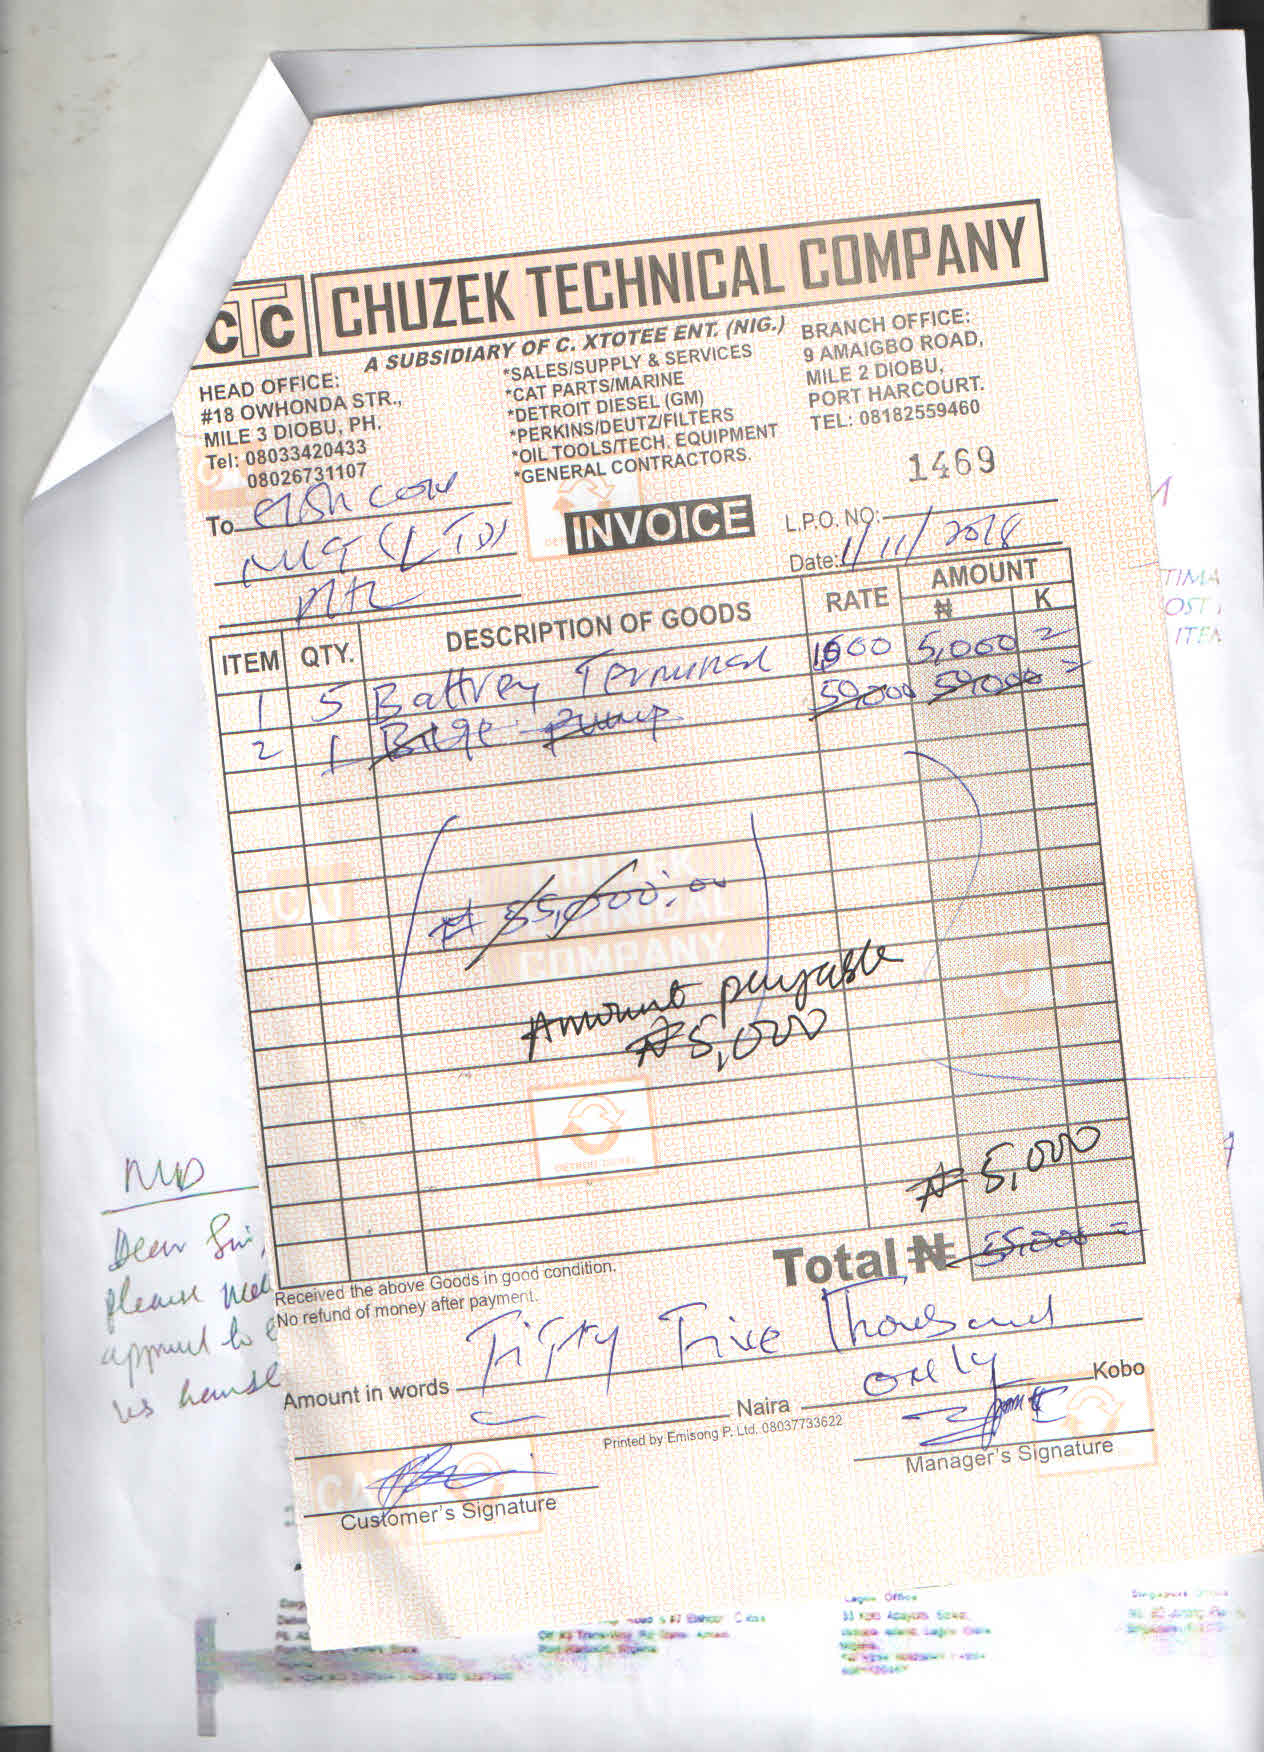 CTC CHUZEK TECHNICAL COMPANY
A SUBSIDIARY OF C. XTOTEE ENT. (NIG.)
HEAD OFFICE:
#18 OWHONDA STR.,
MILE 3 DIOBU, PH.
Tel: 08033420433
08026731107
*SALES/SUPPLY & SERVICES
*CAT PARTS/MARINE
*DETROIT DIESEL (GM)
*PERKINS/DEUTZ/FILTERS
*OIL TOOLS/TECH. EQUIPMENT
*GENERAL CONTRACTORS.
BRANCH OFFICE:
9 AMAIGBO ROAD,
MILE 2 DIOBU,
PORT HARCOURT.
TEL: 08182559460
1469
To
(LTD)
INVOICE
L.P.O. NO:
Date: 1/11/2018
ITEM QTY. DESCRIPTION OF GOODS RATE AMOUNT
₦ K
1 5 Battrey Terminal 1,000 5,000 =
2 1 Bilge pump 50,000 50,000 =
CHUZEK
TECHNICAL
COMPANY
₦ 55,000:00
Amount payable
₦5,000
₦ 5,000
Total ₦ 55,000 =
Received the above Goods in good condition.
No refund of money after payment.
Amount in words Fifty Five Thousand
Naira only Kobo
Printed by Emisong P. Ltd. 08037733622
Customer's Signature
Manager's Signature
MD
Dear Sir,
please
TIMA
OST
ITEM
Lagos Office